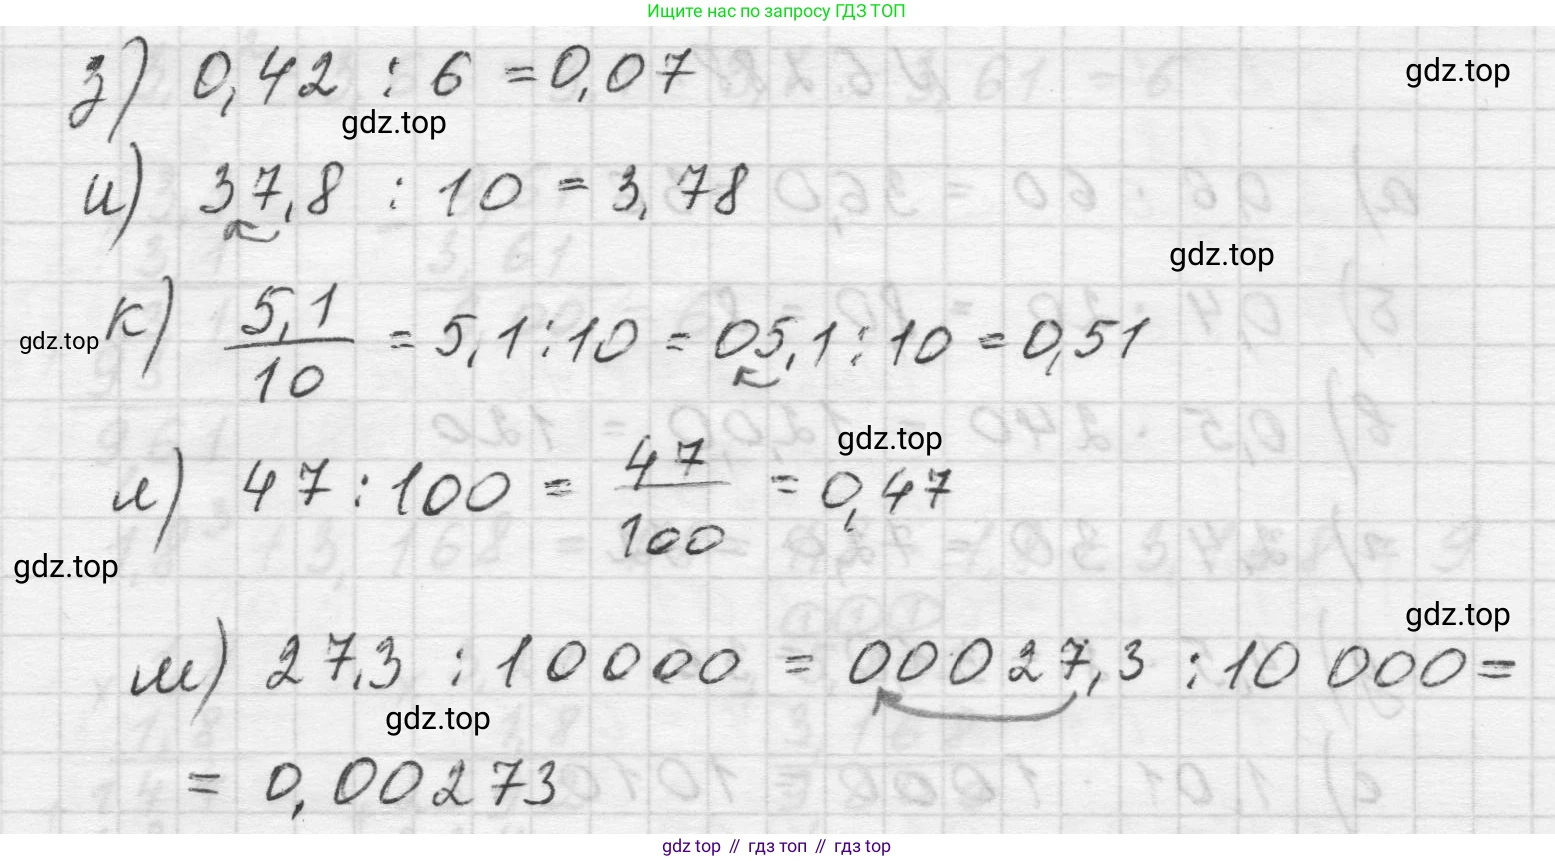 Ищите нас по запросу ГДЗ ТОП
з) 0,42 : 6 = 0,07
gdz.top
gdz.top
и) 37,8 : 10 = 3,78
gdz.top
к) 5,1/10 = 5,1 : 10 = 05,1 : 10 = 0,51
gdz.top
л) 47 : 100 = 47/100 = 0,47
gdz.top
gdz.top
м) 27,3 : 10000 = 00027,3 : 10 000 =
gdz.top
gdz.top
= 0,00273
gdz top // гдз топ // гдз top